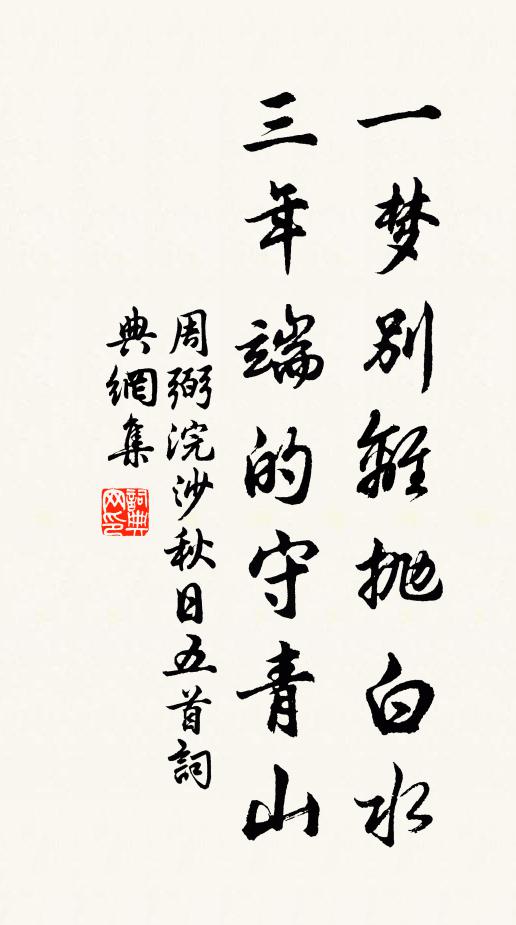 一梦别離抛白水
三年端的守青山
周弼浣沙秋日五首詞
典網集
詞典网印